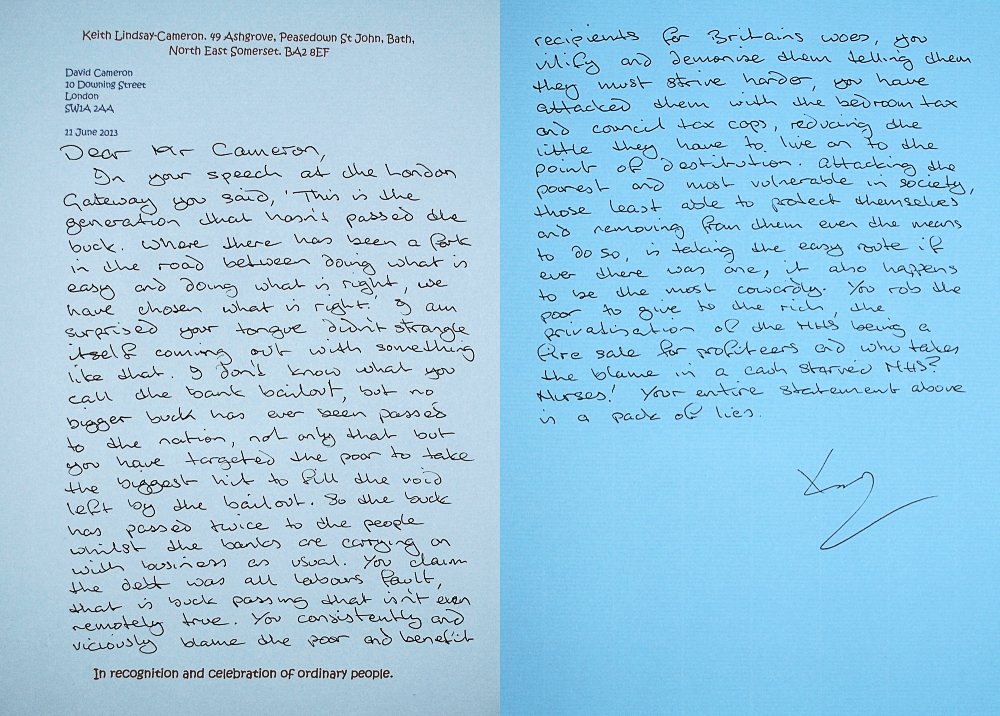 Keith Lindsay-Cameron. 49 Ashgrove, Peasedown St John, Bath,
North East Somerset. BA2 8EF
David Cameron
10 Downing Street
London
SW1A 2AA
11 June 2013
Dear Mr Cameron,
In your speech at the London
Gateway you said, 'This is the
generation that hasn't passed the
buck. Where there has been a fork
in the road between doing what is
easy and doing what is right, we
have chosen what is right.' I am
surprised your tongue didn't strangle
itself coming out with something
like that. I don't know what you
call the bank bailout, but no
bigger buck has ever been passed
to the nation, not only that but
you have targeted the poor to take
the biggest hit to fill the void
left by the bailout. So the buck
has passed twice to the people
whilst the banks are carrying on
with business as usual. You claim
the debt was all labours fault,
that is buck passing that isn't even
remotely true. You consistently and
viciously blame the poor and benefit
In recognition and celebration of ordinary people.
recipients for Britains woes, you
vilify and demonise them telling them
they must strive harder, you have
attacked them with the bedroom tax
and council tax caps, reducing the
little they have to live on to the
point of destitution. Attacking the
poorest and most vulnerable in society,
those least able to protect themselves
and removing from them even the means
to do so, is taking the easy route if
ever there was one, it also happens
to be the most cowardly. You rob the
poor to give to the rich, the
privatisation of the NHS being a
fire sale for profiteers and who takes
the blame in a cash starved NHS?
Nurses! Your entire statement above
is a pack of lies.